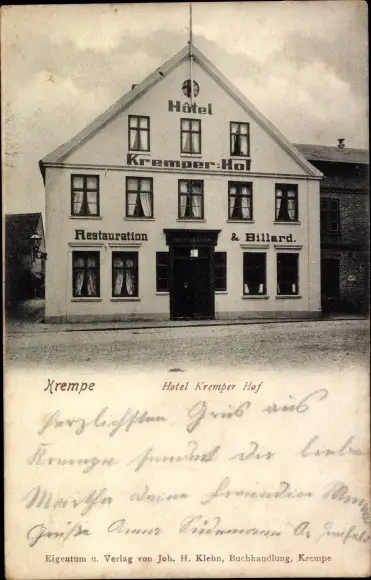 Hôtel
Kremper-Hof
Restauration & Billard.
Krempe Hotel Kremper Hof
Herzlichsten Gruß aus
Krempe sendet der lieben
Martha deine Freundin
Grüße Anna
Eigentum u. Verlag von Joh. H. Klehn, Buchhandlung, Krempe